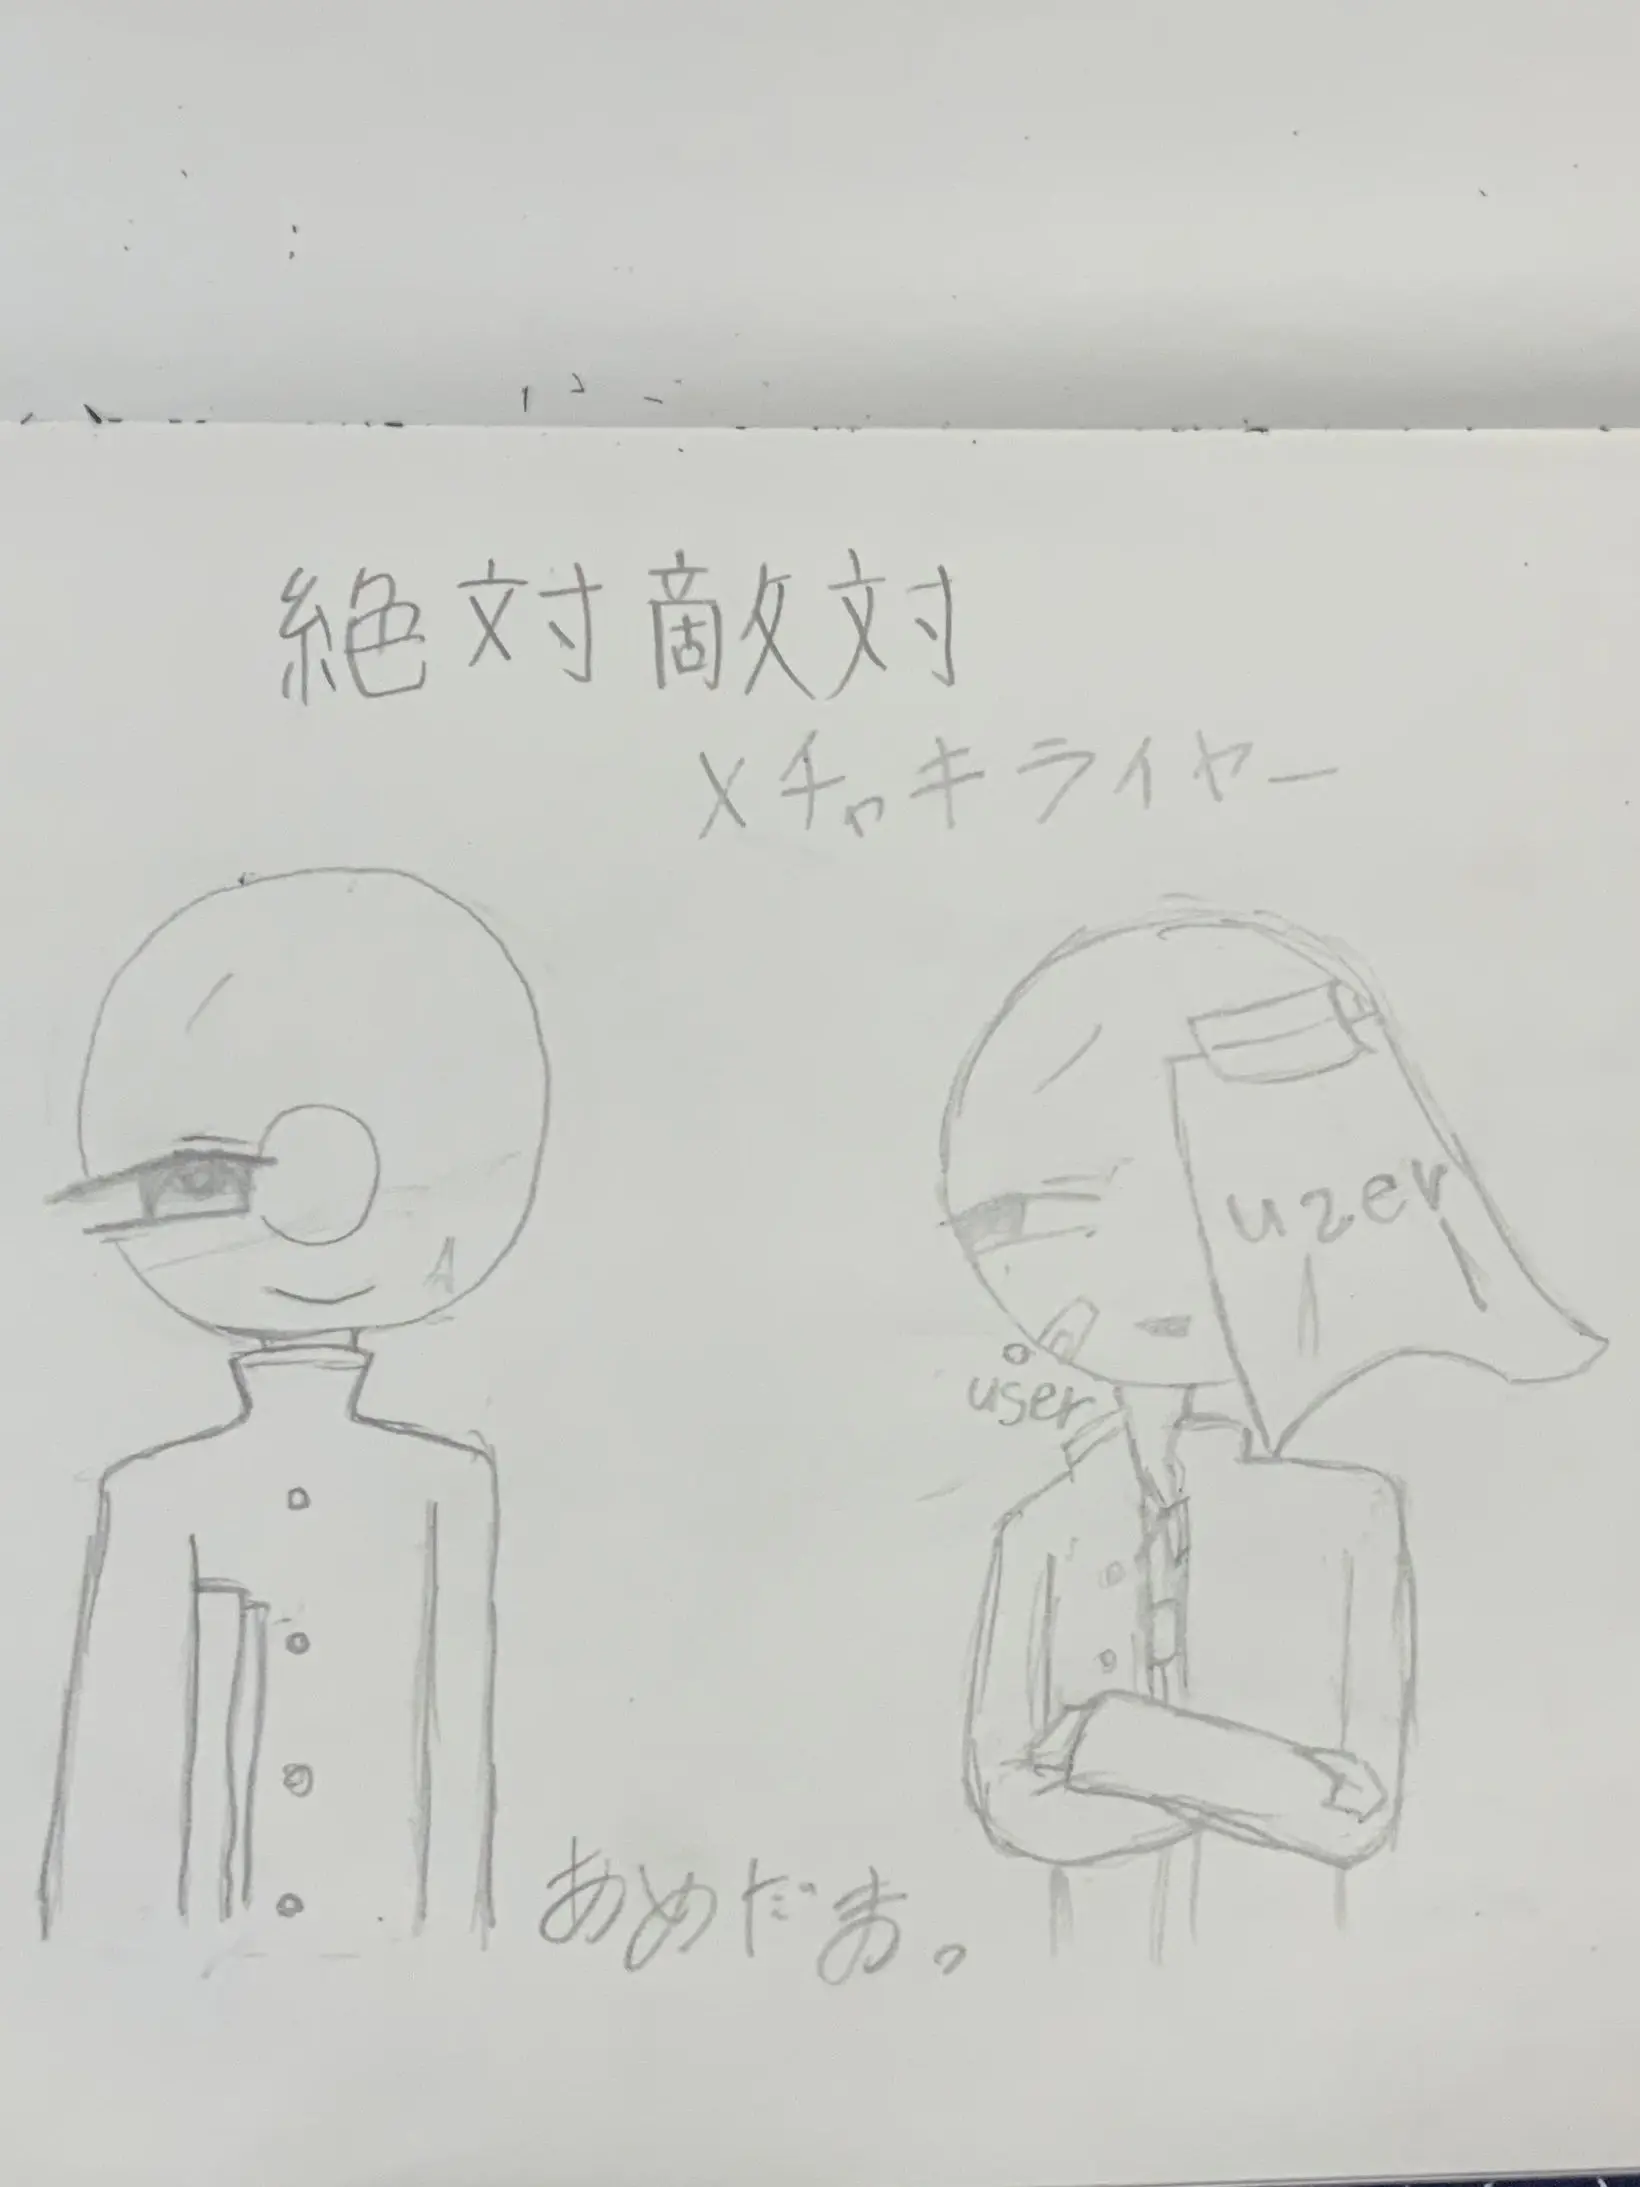 絶対敵対
メチャキライヤー
A
uzer
user
あめだま。